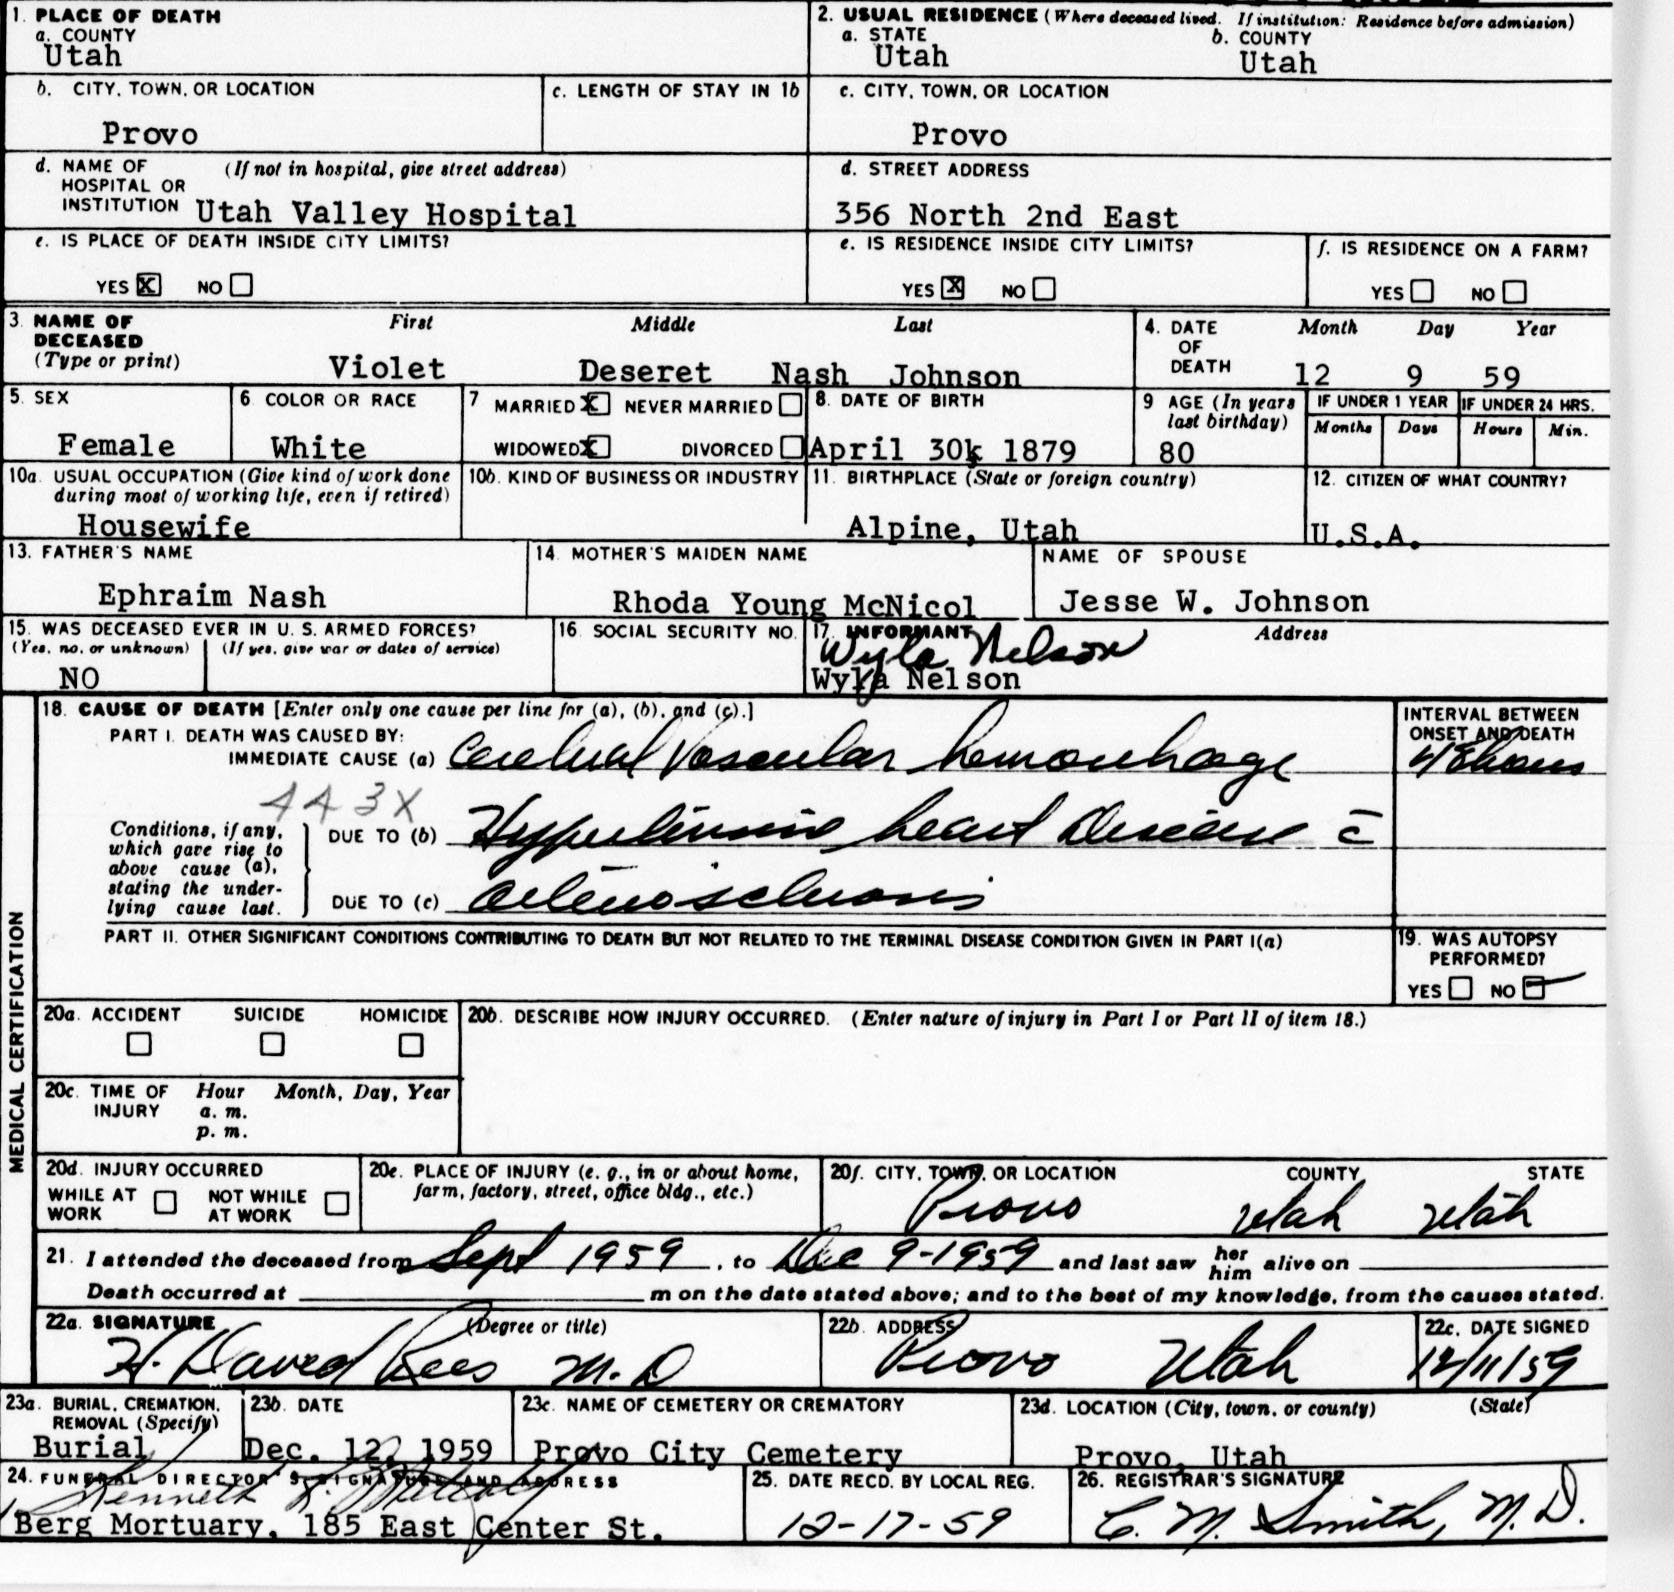 1. PLACE OF DEATH
a. COUNTY
Utah
2. USUAL RESIDENCE (Where deceased lived. If institution: Residence before admission)
a. STATE b. COUNTY
Utah Utah
b. CITY, TOWN, OR LOCATION
Provo
c. LENGTH OF STAY IN 1b
c. CITY, TOWN, OR LOCATION
Provo
d. NAME OF (If not in hospital, give street address)
HOSPITAL OR
INSTITUTION Utah Valley Hospital
d. STREET ADDRESS
356 North 2nd East
e. IS PLACE OF DEATH INSIDE CITY LIMITS?
YES X NO
e. IS RESIDENCE INSIDE CITY LIMITS?
YES X NO
f. IS RESIDENCE ON A FARM?
YES NO
3. NAME OF DECEASED (Type or print)
First Middle Last
Violet Deseret Nash Johnson
4. DATE OF DEATH
Month Day Year
12 9 59
5. SEX
Female
6 COLOR OR RACE
White
7 MARRIED X NEVER MARRIED
WIDOWED X DIVORCED
8. DATE OF BIRTH
April 30, 1879
9 AGE (In years last birthday)
80
IF UNDER 1 YEAR
Months Days
IF UNDER 24 HRS.
Hours Min.
10a. USUAL OCCUPATION (Give kind of work done
during most of working life, even if retired)
Housewife
10b. KIND OF BUSINESS OR INDUSTRY
11. BIRTHPLACE (State or foreign country)
Alpine, Utah
12. CITIZEN OF WHAT COUNTRY?
U.S.A.
13. FATHER'S NAME
Ephraim Nash
14. MOTHER'S MAIDEN NAME
Rhoda Young McNicol
NAME OF SPOUSE
Jesse W. Johnson
15. WAS DECEASED EVER IN U. S. ARMED FORCES?
(Yes, no, or unknown) (If yes, give war or dates of service)
NO
16. SOCIAL SECURITY NO.
17. INFORMANT Address
Wyla Nelson
Wyla Nelson
MEDICAL CERTIFICATION
18. CAUSE OF DEATH [Enter only one cause per line for (a), (b), and (c).]
PART I. DEATH WAS CAUSED BY:
IMMEDIATE CAUSE (a) Cerebral Vascular hemorrhage
INTERVAL BETWEEN
ONSET AND DEATH
48 hours
443X
Conditions, if any,
which gave rise to
above cause (a),
stating the under-
lying cause last.
DUE TO (b) Hypertensive heart Disease c̄
DUE TO (c) arteriosclerosis
PART II. OTHER SIGNIFICANT CONDITIONS CONTRIBUTING TO DEATH BUT NOT RELATED TO THE TERMINAL DISEASE CONDITION GIVEN IN PART I(a)
19. WAS AUTOPSY
PERFORMED?
YES NO
20a. ACCIDENT SUICIDE HOMICIDE
20b. DESCRIBE HOW INJURY OCCURRED. (Enter nature of injury in Part I or Part II of item 18.)
20c. TIME OF INJURY Hour Month, Day, Year
a. m.
p. m.
20d. INJURY OCCURRED
WHILE AT WORK NOT WHILE AT WORK
20e. PLACE OF INJURY (e. g., in or about home,
farm, factory, street, office bldg., etc.)
20f. CITY, TOWN, OR LOCATION COUNTY STATE
Provo Utah Utah
21. I attended the deceased from Sept 1959, to Dec 9-1959 and last saw her him alive on
Death occurred at m on the date stated above; and to the best of my knowledge, from the causes stated.
22a. SIGNATURE (Degree or title)
H. David Rees M.D
22b. ADDRESS
Provo Utah
22c. DATE SIGNED
12/11/59
23a. BURIAL, CREMATION,
REMOVAL (Specify)
Burial
23b. DATE
Dec. 12, 1959
23c. NAME OF CEMETERY OR CREMATORY
Provo City Cemetery
23d. LOCATION (City, town, or county) (State)
Provo, Utah
24. FUNERAL DIRECTOR'S SIGNATURE AND ADDRESS
Kenneth
Berg Mortuary, 185 East Center St.
25. DATE RECD. BY LOCAL REG.
12-17-59
26. REGISTRAR'S SIGNATURE
C. M. Smith, M.D.